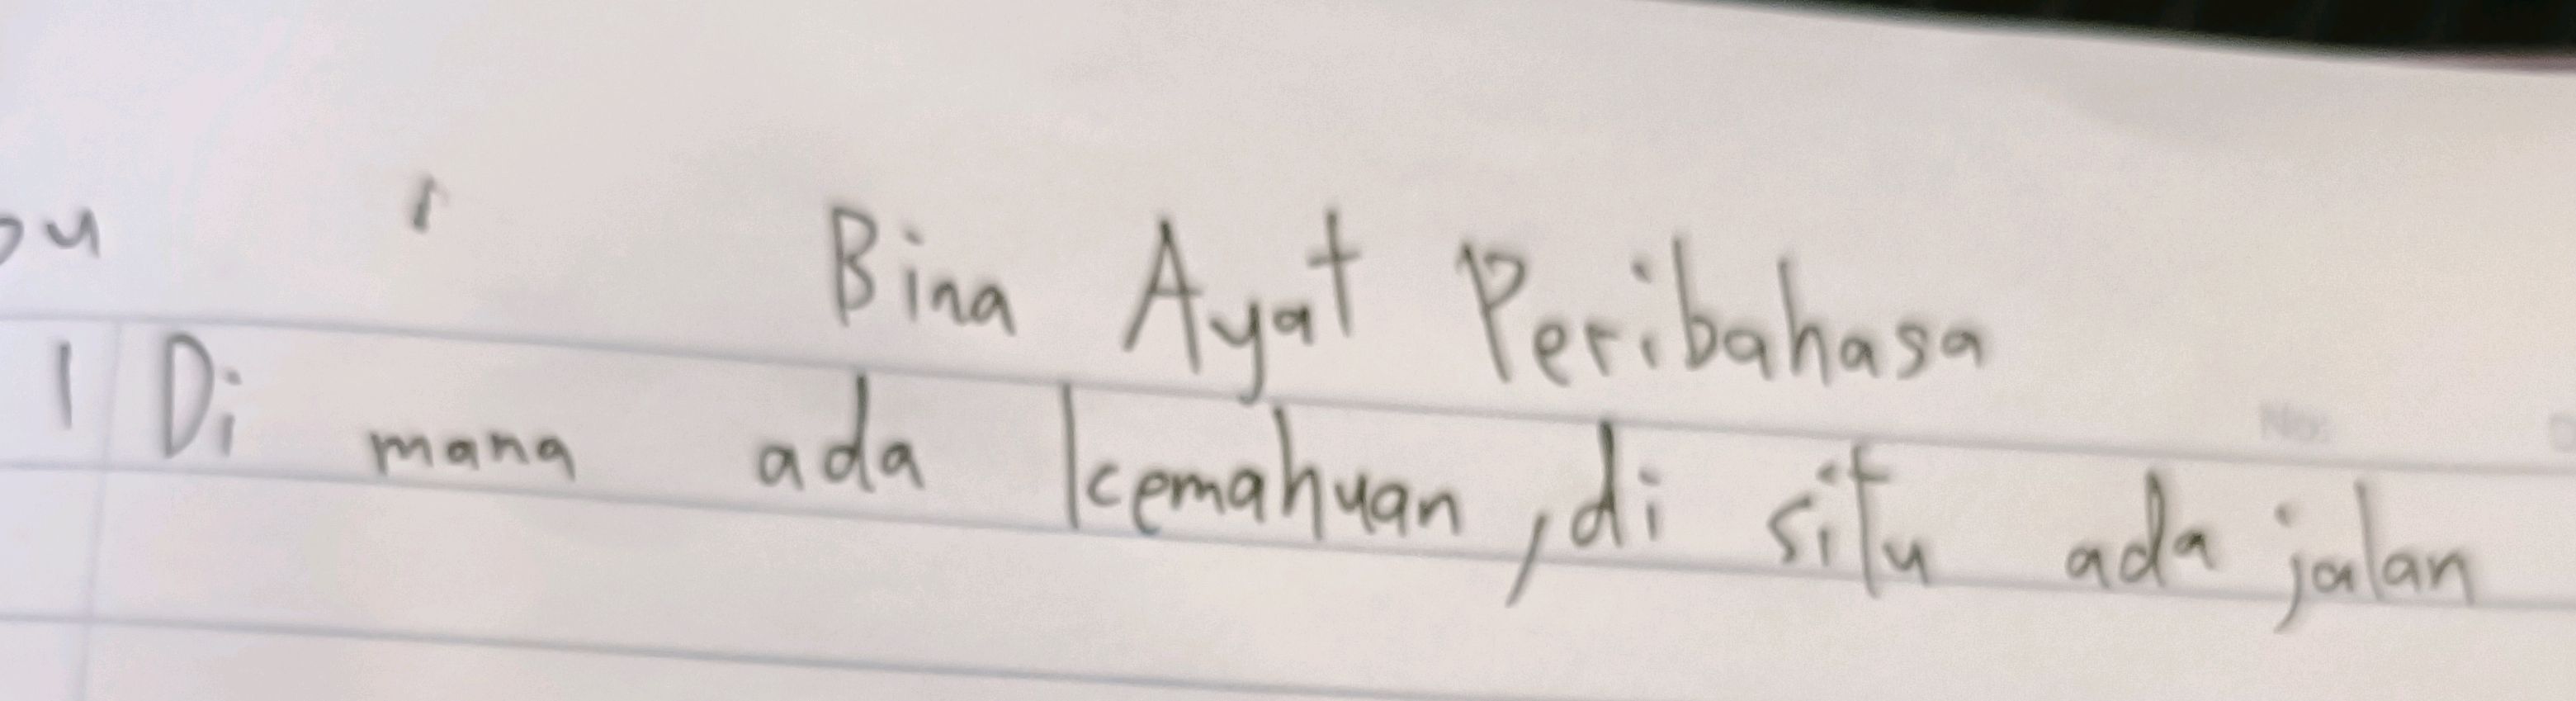 Bina Ayat Peribahasa
1 Di mana ada kemahuan, di situ ada jalan
No: